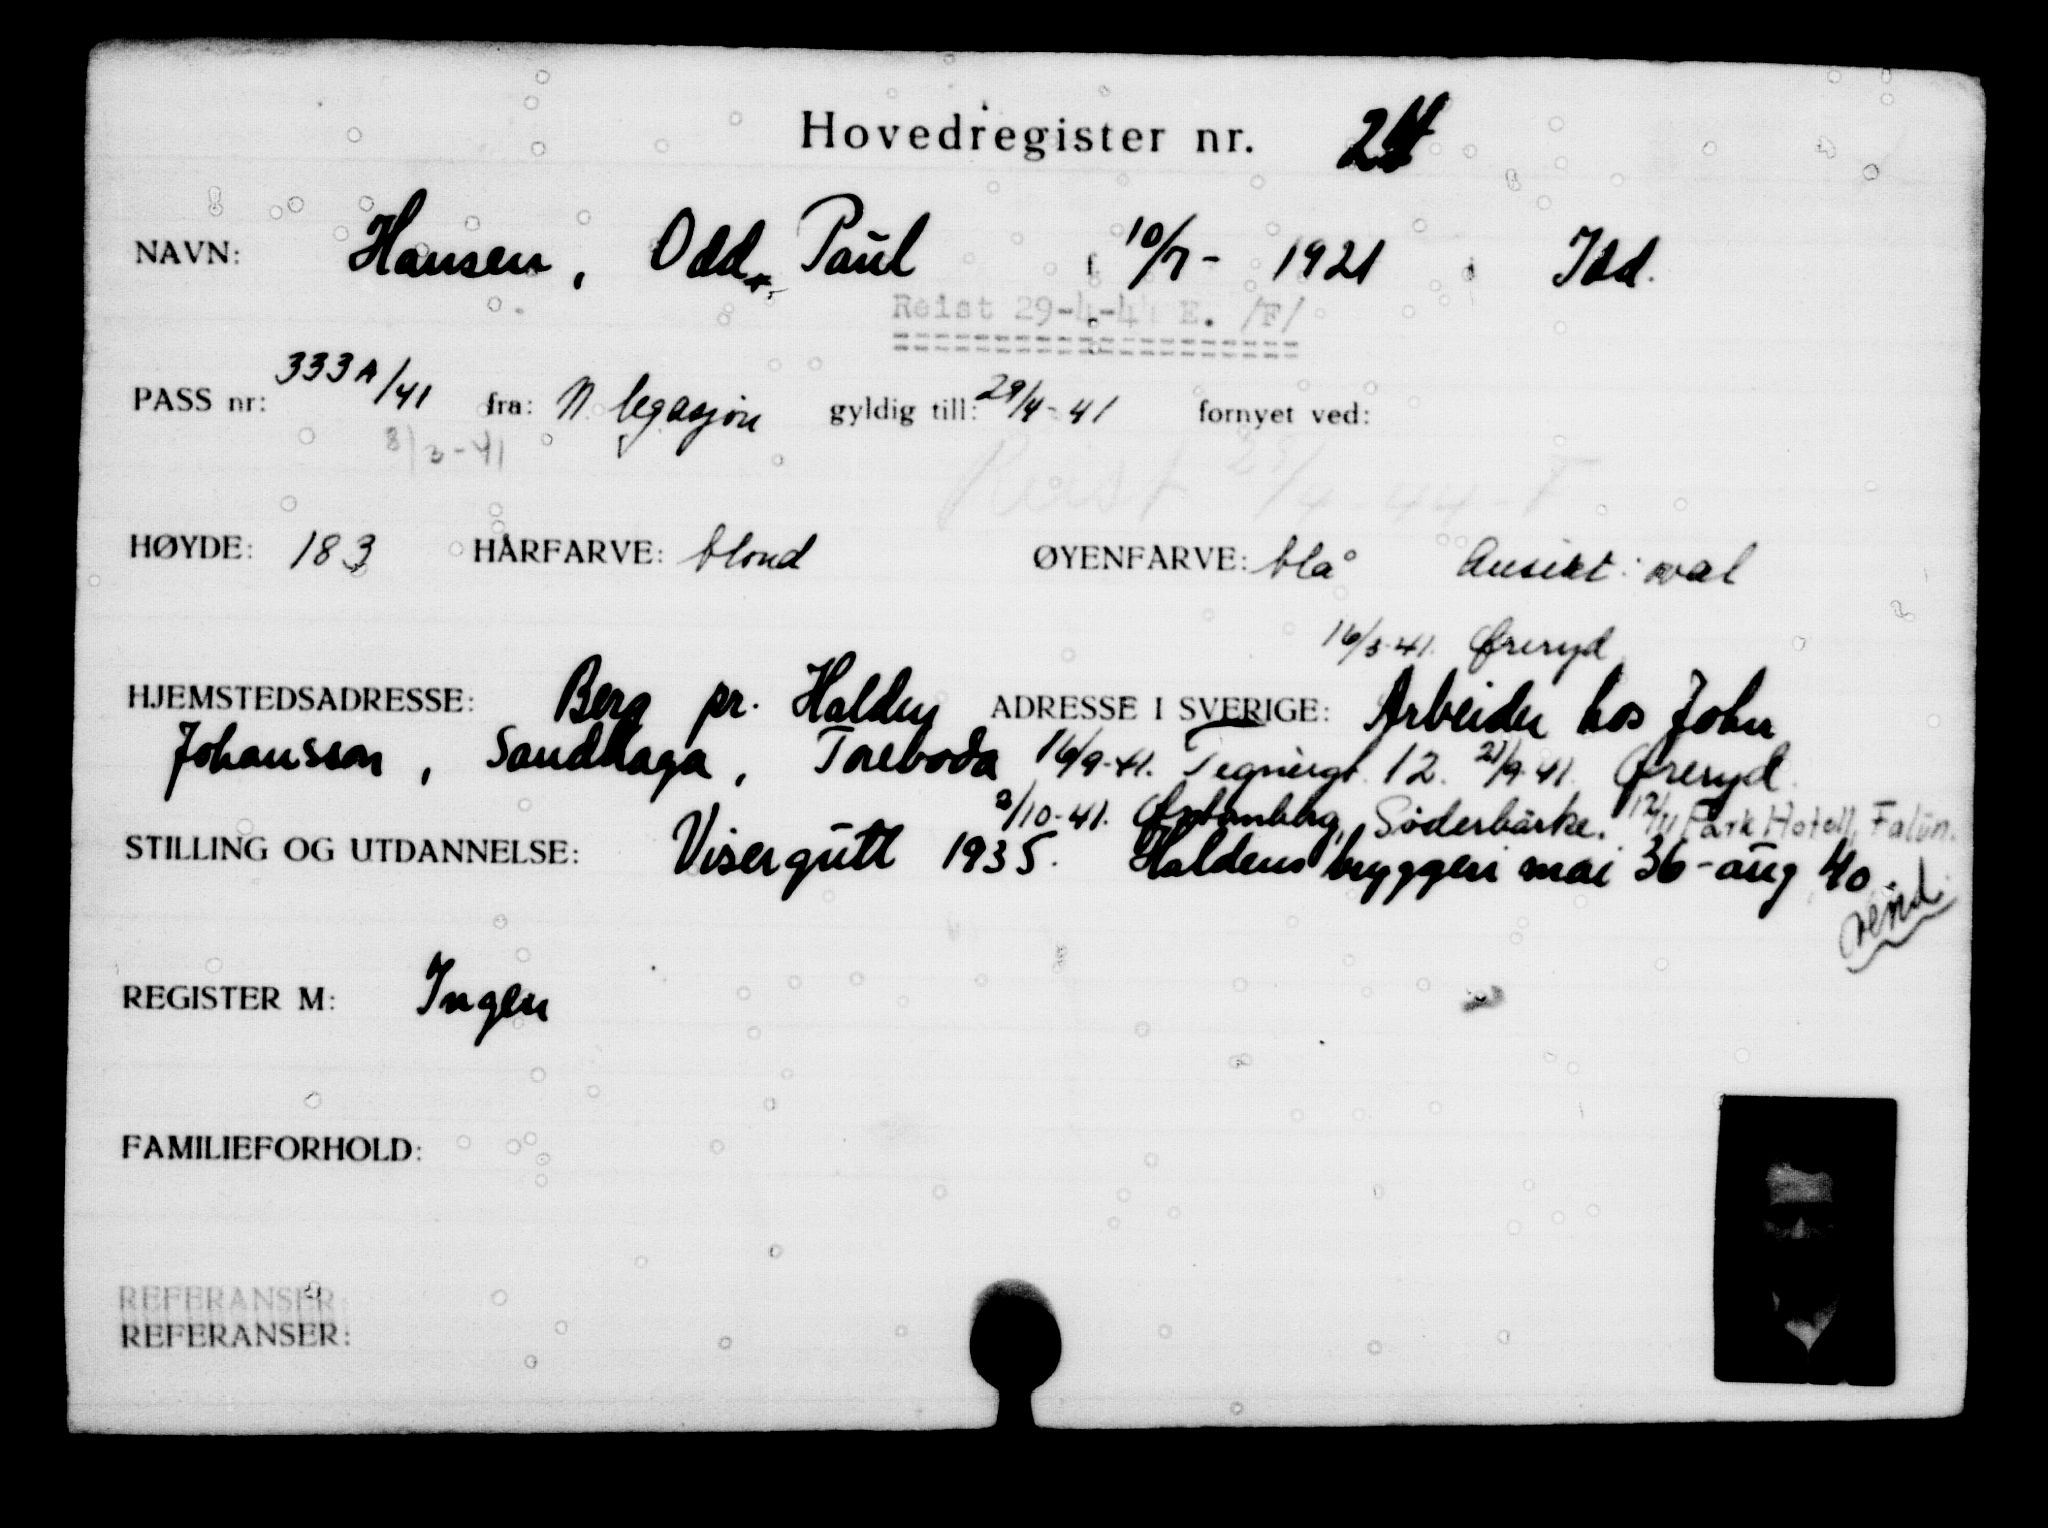 Hovedregister nr.
NAVN: Hansen, Odd Paul f 10/7 - 1921 i Idd.
Reist 29-4-4 E. /F/
PASS nr: 333A/41 fra: N legasjon gyldig till: 29/4-41 fornyet ved:
8/3-41
Reist 25/4-44-F
HØYDE: 183 HÅRFARVE: blond ØYENFARVE: blå Ansikt: oval
16/3-41. Øreryd
HJEMSTEDSADRESSE: Berg pr. Halden ADRESSE I SVERIGE: Arbeider hos John
Johansson, Sandhaga, Toreboda 16/9-41. Tegnérgt. 12. 21/9-41 Øreryd.
2/10-41. Söderbärke. 12/11 Park Hotell, Falun.
STILLING OG UTDANNELSE: Visergutt 1935. Haldens bryggeri mai 36-aug 40.
vend.
REGISTER M: Ingen
FAMILIEFORHOLD:
REFERANSER:
REFERANSER: